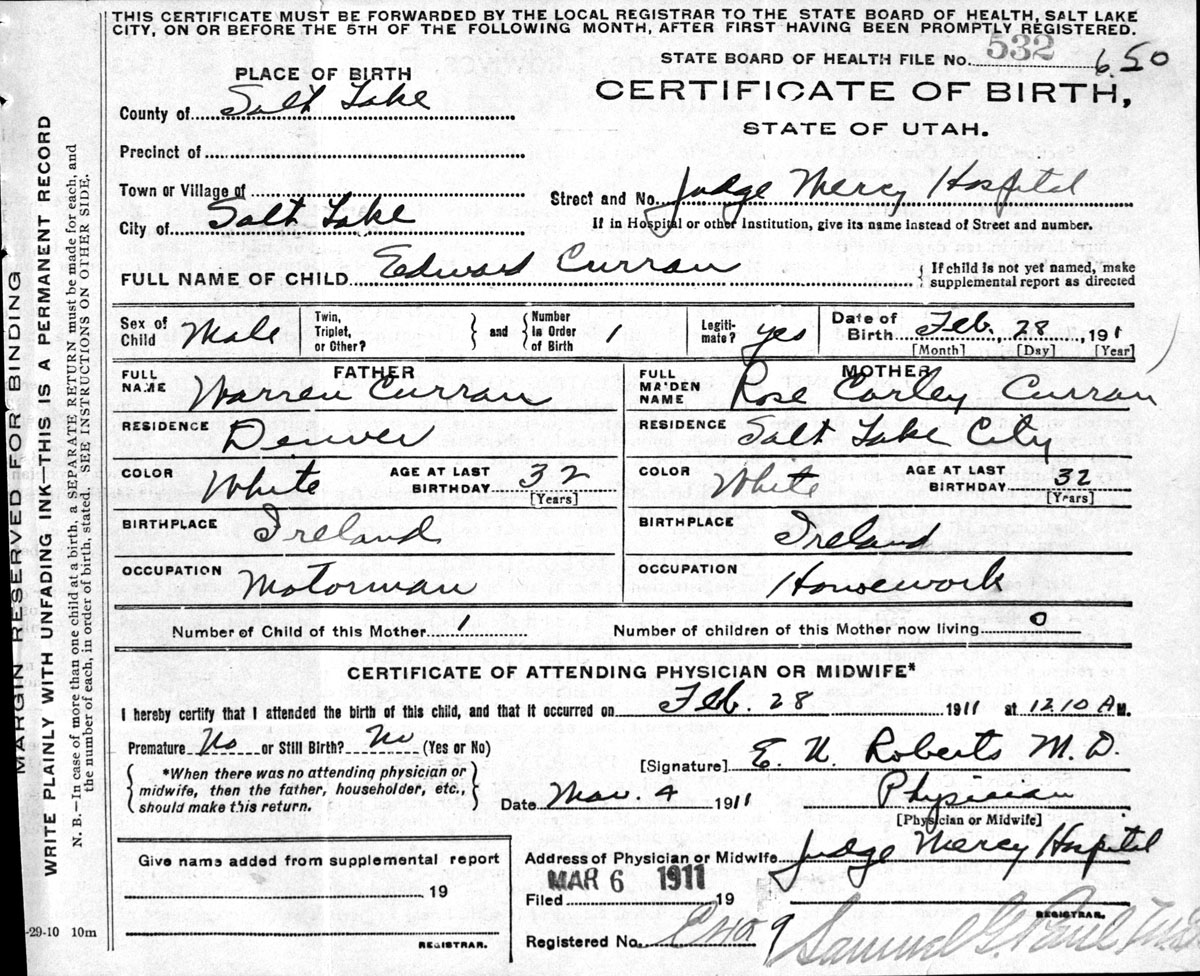 THIS CERTIFICATE MUST BE FORWARDED BY THE LOCAL REGISTRAR TO THE STATE BOARD OF HEALTH, SALT LAKE
CITY, ON OR BEFORE THE 5TH OF THE FOLLOWING MONTH, AFTER FIRST HAVING BEEN PROMPTLY REGISTERED.
STATE BOARD OF HEALTH FILE No. 532 650
PLACE OF BIRTH
CERTIFICATE OF BIRTH,
County of Salt Lake
STATE OF UTAH.
Precinct of
Town or Village of
Street and No. Judge Mercy Hospital
City of Salt Lake
If in Hospital or other Institution, give its name instead of Street and number.
FULL NAME OF CHILD Edward Curran
{ If child is not yet named, make
supplemental report as directed
Sex of Child Male
Twin, Triplet, or Other? } and { Number in Order of Birth 1
Legiti-mate? yes
Date of Birth Feb. 28, 1911
[Month] [Day] [Year]
FATHER
FULL NAME Warren Curran
MOTHER
FULL MAIDEN NAME Rose Corley Curran
RESIDENCE Denver
RESIDENCE Salt Lake City
COLOR White AGE AT LAST BIRTHDAY 32 [Years]
COLOR White AGE AT LAST BIRTHDAY 32 [Years]
BIRTHPLACE Ireland
BIRTHPLACE Ireland
OCCUPATION Motorman
OCCUPATION Housework
Number of Child of this Mother 1
Number of children of this Mother now living 0
CERTIFICATE OF ATTENDING PHYSICIAN OR MIDWIFE*
I hereby certify that I attended the birth of this child, and that it occurred on Feb. 28 1911 at 1210 AM.
Premature No or Still Birth? No (Yes or No)
[Signature] E. U. Roberts M.D.
{ *When there was no attending physician or
midwife, then the father, householder, etc.,
should make this return. }
Date Mar. 4 1911 Physician
[Physician or Midwife]
Give name added from supplemental report
19
REGISTRAR.
Address of Physician or Midwife Judge Mercy Hospital
Filed MAR 6 1911 19
REGISTRAR.
Registered No.
Samuel G. Paul
-29-10 10m
MARGIN RESERVED FOR BINDING
WRITE PLAINLY WITH UNFADING INK—THIS IS A PERMANENT RECORD
N. B.—In case of more than one child at a birth, a SEPARATE RETURN must be made for each, and
the number of each, in order of birth, stated. SEE INSTRUCTIONS ON OTHER SIDE.